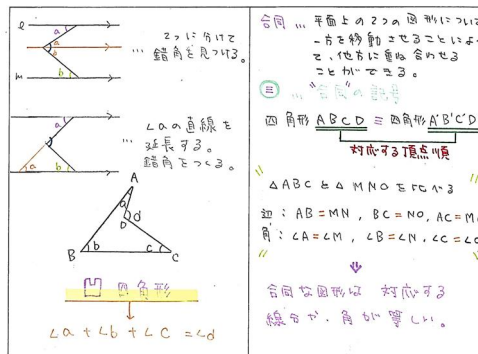 ℓ
a
a
b
b
m
2つに分けて
… 錯角を見つける。
a
a
b
∠aの直線を
… 延長する。
錯角をつくる。
A
a
D
d
B
b
c
C
凹 四角形
∠a + ∠b + ∠c = ∠d
合同 … 平面上の2つの図形について
一方を移動させることによっ
て、他方に重ね合わせる
ことができる。
≡ … "合同"の記号
四角形 ABCD ≡ 四角形 A'B'C'D
対応する頂点順
△ABC と △MNO を比べる
辺 : AB=MN , BC=NO, AC=M
角 : ∠A=∠M , ∠B=∠N, ∠C=∠
合同な図形は 対応する
線分や、角が等しい。